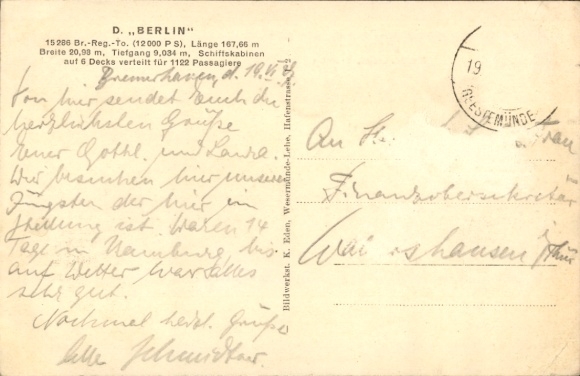 D. „BERLIN"
15286 Br.-Reg.-To. (12000 PS), Länge 167,66 m
Breite 20,98 m, Tiefgang 9,034 m, Schiffskabinen
auf 6 Decks verteilt für 1122 Passagiere
Bremerhaven, d. 19. VI.
Von hier sendet Euch die
herzlichsten Grüße
Euer Gotth. und
Wir besuchen hier unseren
Jüngsten der hier in
Stellung ist. Waren 14
Tage in Hamburg, bis
auf Wetter war alles
sehr gut.
Nochmal herzl. Grüße
Bildwerkst. K. Eden, Wesermünde-Lehe, Hafenstrasse
19
An
Frau
Finanzobersekretär